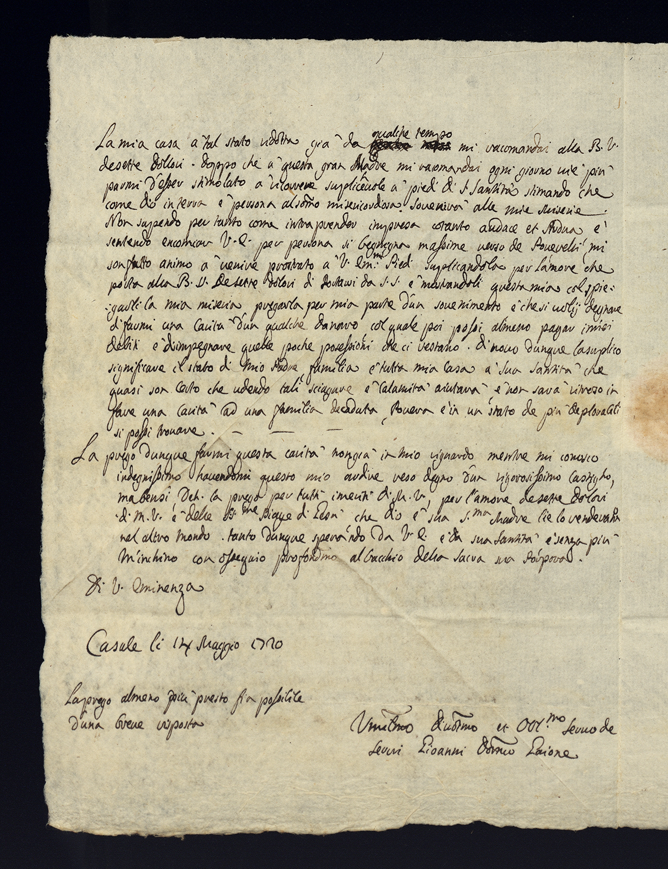 La mia casa a tal stato ridotta già da qualche tempo mi racomandai alla B. V.
de sette dolori. doppo che a questa gran Madre mi racomandai ogni giorno mi è piu
parmi d'esser stimolato a ricorrere suplicheuole a' piedi di S. Santità stimando che
come dio in terra e persona al sommo misericordiosa souenirà alle mie miserie.
Non sapendo per tanto come intraprender impresa cotanto audace et ardua e
sentendo encomiar V. E. per persona si benigna massime uerso de Pouerelli mi
son fatto animo a uenire prostrato a V. Em. Piedi suplicandola per l'amore che
porta alla B. V. de sette dolori di portarsi da S. S. e narrandoli questa mia col
la mia miseria pregarla per mia parte d'un souenimento e che si uolij degnare
di farmi una Carità d'un qualche danaro col quale poi possi almeno pagar i miei
debiti e disimpegnare quelle poche possessioni che ci restano. di nouo dunque la suplico
significare il stato di mio Padre famiglia e tutta mia casa a Sua Santità che
quasi son certo che udendo tali sciagure e calamità aiutarà e non sarà ritroso in
fare una Carità ad una famiglia decaduta Pouera e in un stato de piu deplorabili
si possi trouare.
La prego dunque farmi questa carità non già in mio riguardo mentre mi conosco
indegnissimo hauendomi questo mio ardire reso degno d'un rigorosissimo castigo,
ma bensi Deh. la prego per tutti i meriti di M. V. per l'amore de sette dolori
di M. V. e delle Piaghe di Giesù che dio e sua S.ma Madre lie lo renderanà
nel altro mondo. tanto dunque sperando da V. E. e da sua Santità e senza piu
m'inchino con ossequio profondmo al bacchio della sacra sua Porpora.
Di V. Eminenza
Casale li 14 Maggio 1720
La prego almeno piu presto sia possibile
d'una breue risposta
Umilmo Diuotmo et Obl.mo Seruo de
Serui Gioanni